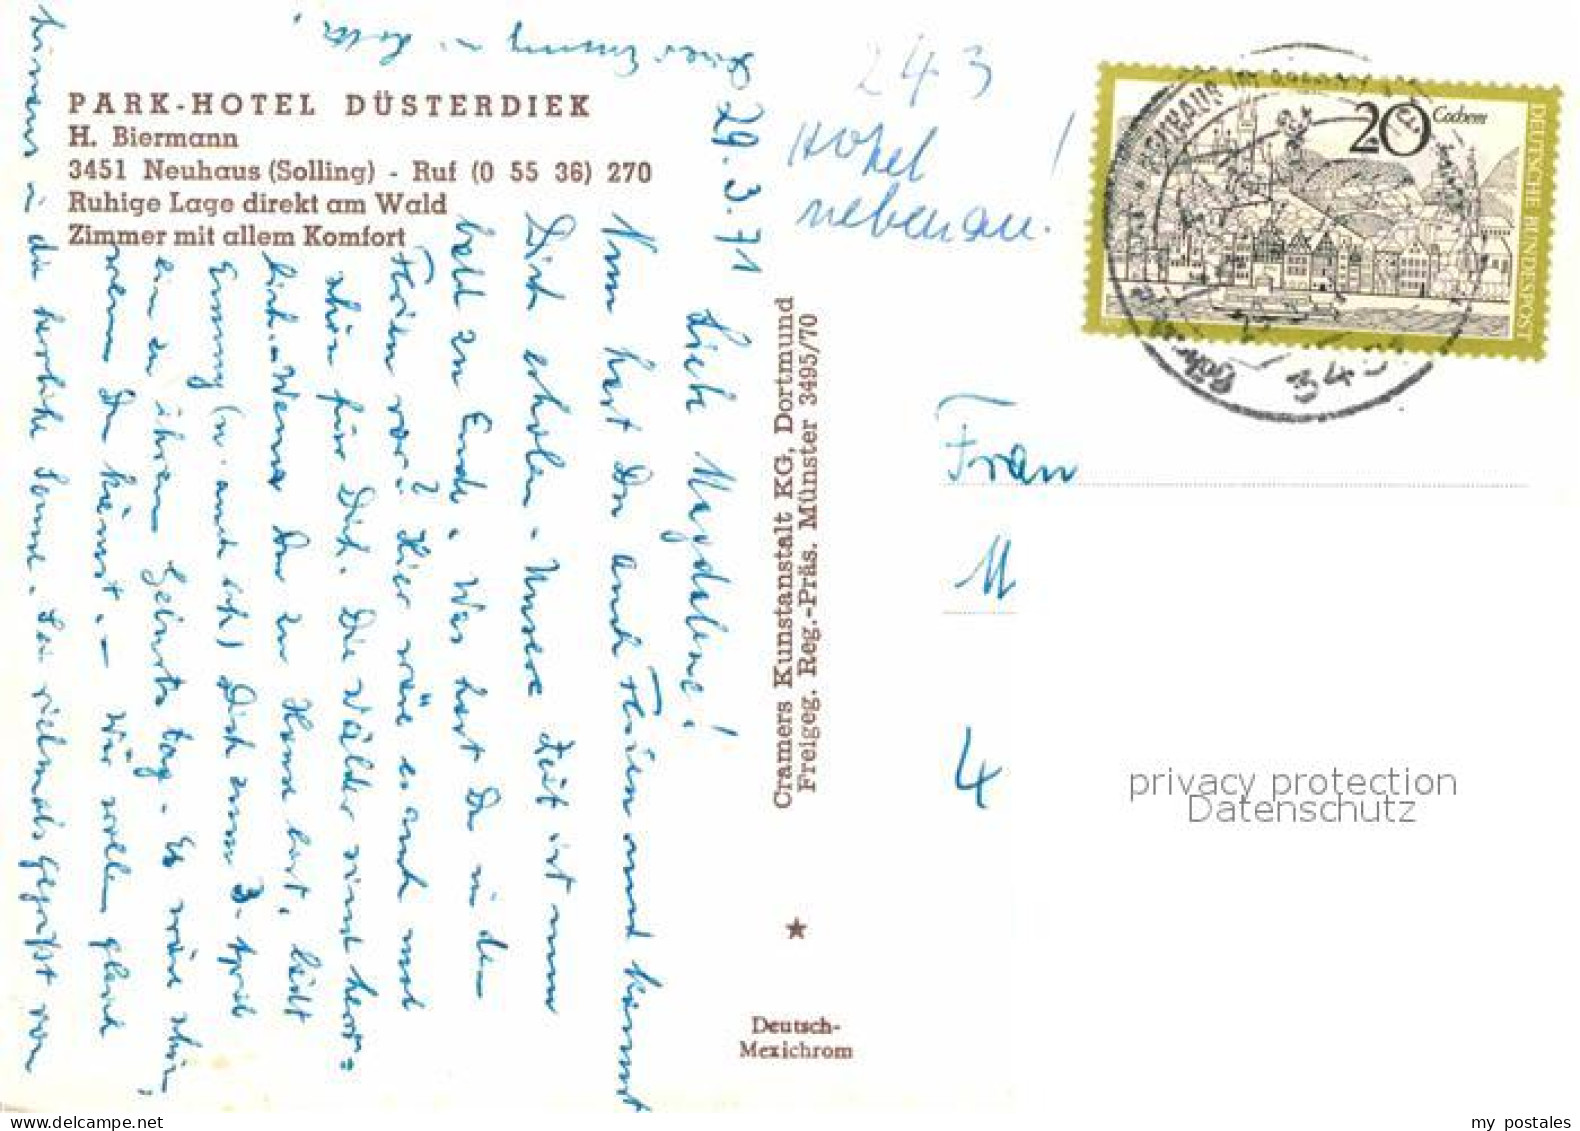 PARK-HOTEL DÜSTERDIEK
H. Biermann
3451 Neuhaus (Solling) - Ruf (0 55 36) 270
Ruhige Lage direkt am Wald
Zimmer mit allem Komfort
29.3.71
Liebe Magdalene!
Nun hast Du auch Ferien und kannst
Dich erholen. Unsere Zeit ist nun
bald zu Ende. Was hast Du in den
Ferien vor? Hier wäre es auch mal
schön für Dich. Die Wälder sind herr=
lich. Wenn Du zu Hause bist, lädt
Emmy (u. auch ich) Dich zum 3. April
ein zu ihrem Geburtstag. Es wäre schön,
wenn Du kämst. - Wir wollen gleich
hinaus in die herrliche Sonne. Sei vielmals gegrüßt von
Emmy u.
243
Hotel
nebenan.
!
Cramers Kunstanstalt KG, Dortmund
Freigeg. Reg.-Präs. Münster 3495/70
Deutsch-
Mexichrom
20
Cochem
DEUTSCHE BUNDESPOST
NEUHAUS IM
345
Frau
M
4
privacy protection
Datenschutz
my postales